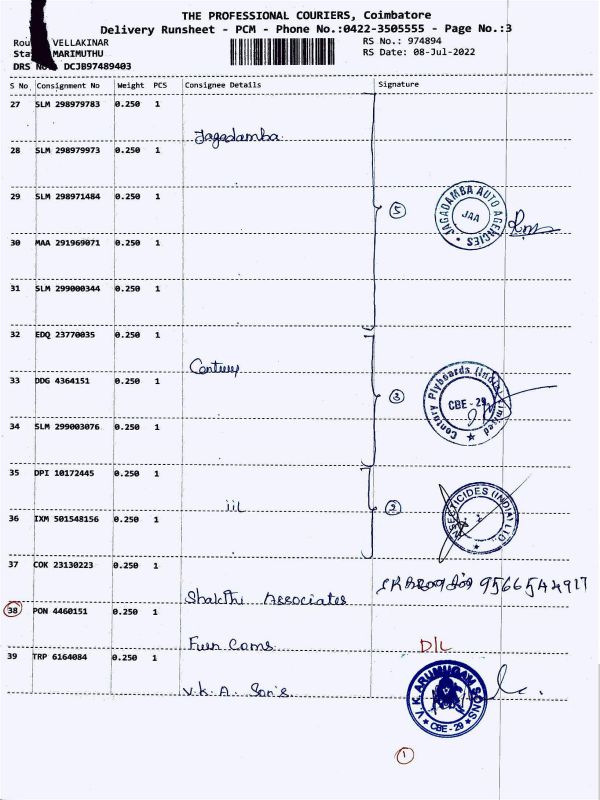 THE PROFESSIONAL COURIERS, Coimbatore
Delivery Runsheet - PCM - Phone No.:0422-3505555 - Page No.:3
VELLAKINAR RS No.: 974894
MARIMUTHU RS Date: 08-Jul-2022
DRS No DCJB97489403
S No Consignment No Weight PCS Consignee Details Signature
27 SLM 298979783 0.250 1
Jagadamba
28 SLM 298979973 0.250 1
29 SLM 298971484 0.250 1
5
JAGADAMBA AUTO AGENCIES
JAA
30 MAA 291969071 0.250 1
31 SLM 299000344 0.250 1
32 EDQ 23770035 0.250 1
Century
33 DDG 4364151 0.250 1
3
Century Plyboards (India) Limited
CBE - 29
34 SLM 299003076 0.250 1
35 DPI 10172445 0.250 1
iil
2
INSECTICIDES (INDIA) LTD
36 IXM 501548156 0.250 1
37 COK 23130223 0.250 1
Shakthi Associates
9566544917
38 PON 4460151 0.250 1
D/L
39 TRP 6164084 0.250 1
V.K.A. Son's
V. K. ARUMUGAM SONS
CBE - 29
1